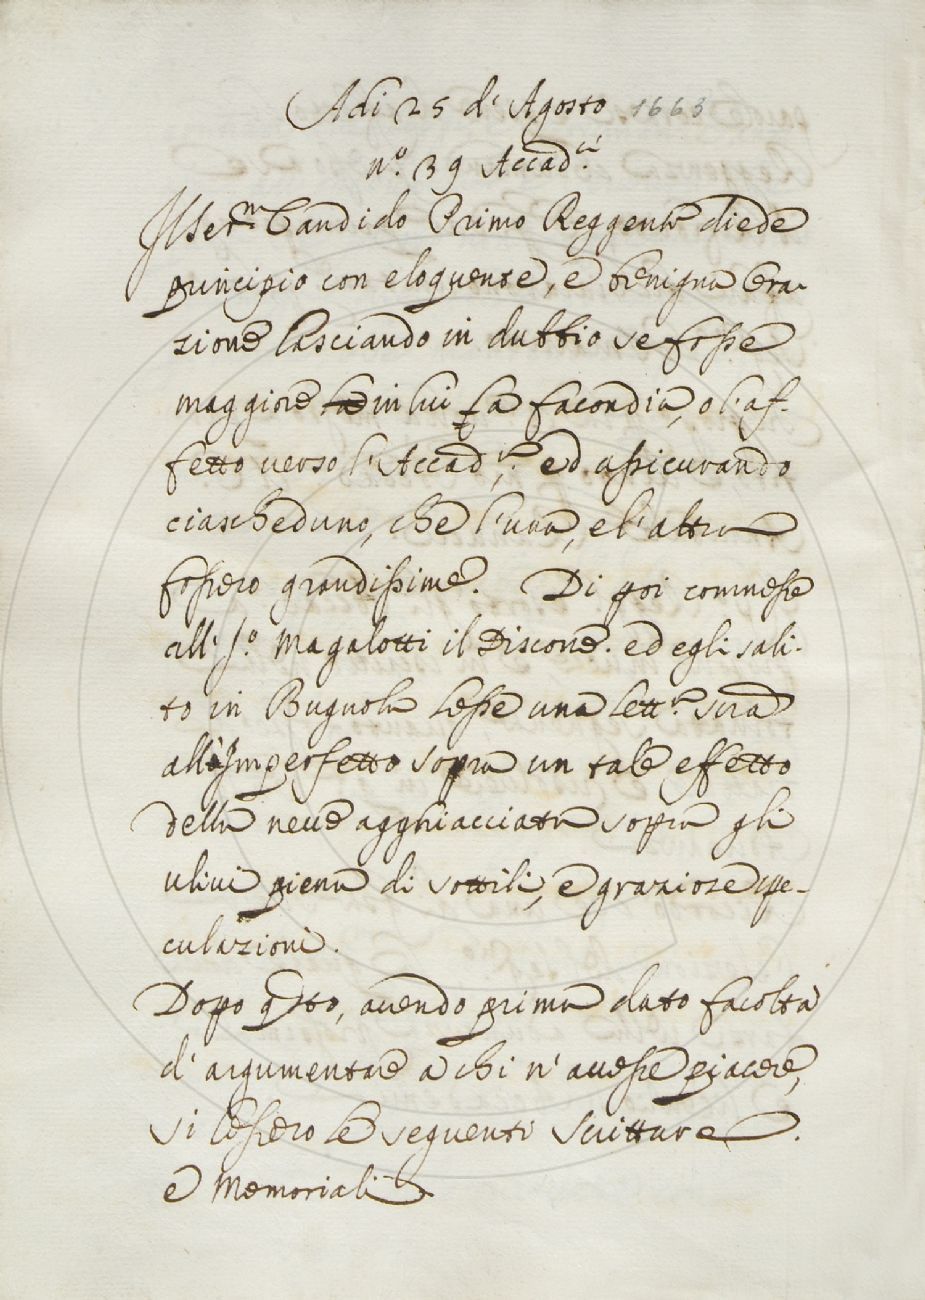 Adi 25 d'Agosto 1663
n.º 39 Accad.ci
Il Ser.mo Candido Primo Reggente diede
principio con eloquente, e benigna Ora-
zione lasciando in dubbio se fosse
maggiore in lui la facondia, o l'af-
fetto verso l'Accad., ed assicurando
ciascheduno, che l'una, e l'altra
fossero grandissime. Di poi commesse
all' S.º Magalotti il Discorre. ed egli sali-
to in Bugnola lesse una lett.ra sua
all'Imperfetto sopra un tale effetto
della neve agghiacciata sopra gli
ulivi piena di sottili, e graziose spe-
culazioni.
Dopo qsto, avendo prima dato facoltà
d'argumentare a chi n'avesse piacere,
si lessero le seguenti Scritture.
e Memoriali